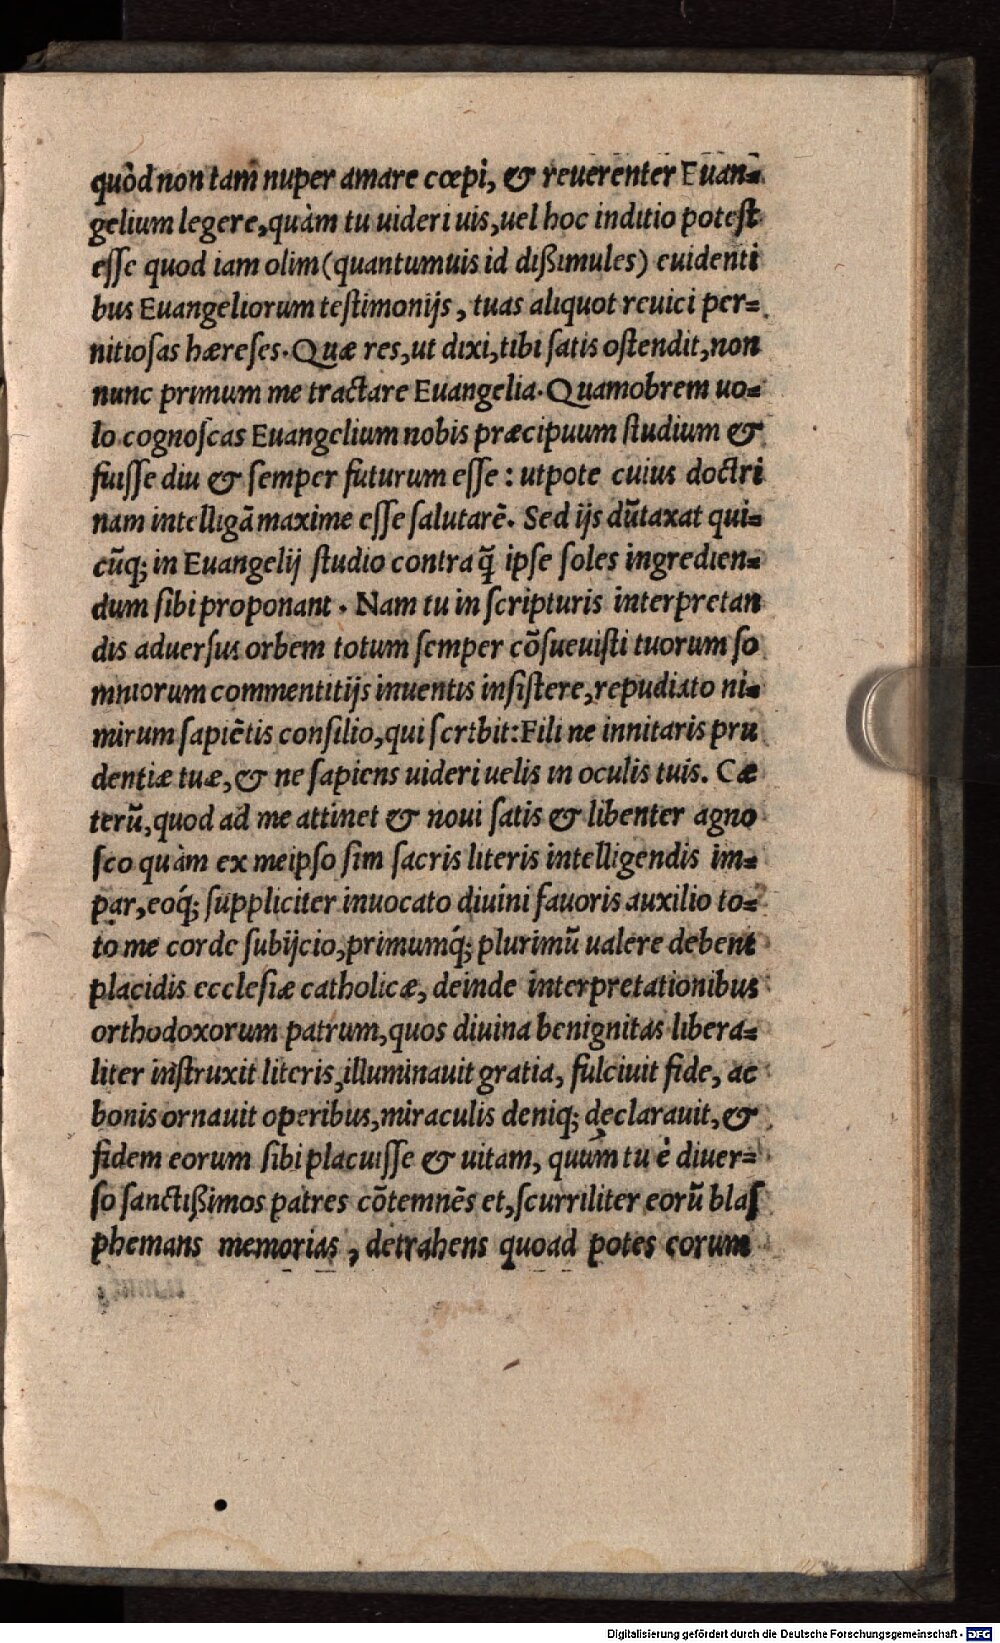 quòd non tam nuper amare cœpi, & reuerenter Euan=
gelium legere, quàm tu uideri uis, uel hoc inditio potest
esse quod iam olim (quantumuis id dißimules) euidenti
bus Euangeliorum testimonijs, tuas aliquot reuici per=
nitiosas hæreses. Quæ res, ut dixi, tibi satis ostendit, non
nunc primum me tractare Euangelia. Quamobrem uo=
lo cognoscas Euangelium nobis præcipuum studium &
fuisse diu & semper futurum esse: utpote cuius doctri
nam intelligā maxime esse salutarē. Sed ijs dūtaxat qui=
cūq; in Euangelij studio contra q̄ ipse soles ingredien=
dum sibi proponant. Nam tu in scripturis interpretan
dis aduersus orbem totum semper cōsueuisti tuorum so
mniorum commentitijs inuentis insistere, repudiato ni=
mirum sapiētis consilio, qui scrtbit: Fili ne innitaris pru
dentiæ tuæ, & ne sapiens uideri uelis in oculis tuis. Cæ
terū, quod ad me attinet & noui satis & libenter agno
sco quàm ex meipso sim sacris literis intelligendis im=
par, eóq́; suppliciter inuocato diuini fauoris auxilio to=
to me corde subijcio, primumq́; plurimū ualere debent
placidis ecclesiæ catholicæ, deinde interpretationibus
orthodoxorum patrum, quos diuina benignitas libera=
liter instruxit literis, illuminauit gratia, fulciuit fide, ac
bonis ornauit operibus, miraculis deniq; declarauit, &
fidem eorum sibi placuisse & uitam, quúm tu è diuer=
so sanctißimos patres cōtemnēs et, scurriliter eorū blas
phemans memorias, detrahens quoad potes eorum
Digitalisierung gefördert durch die Deutsche Forschungsgemeinschaft - DFG